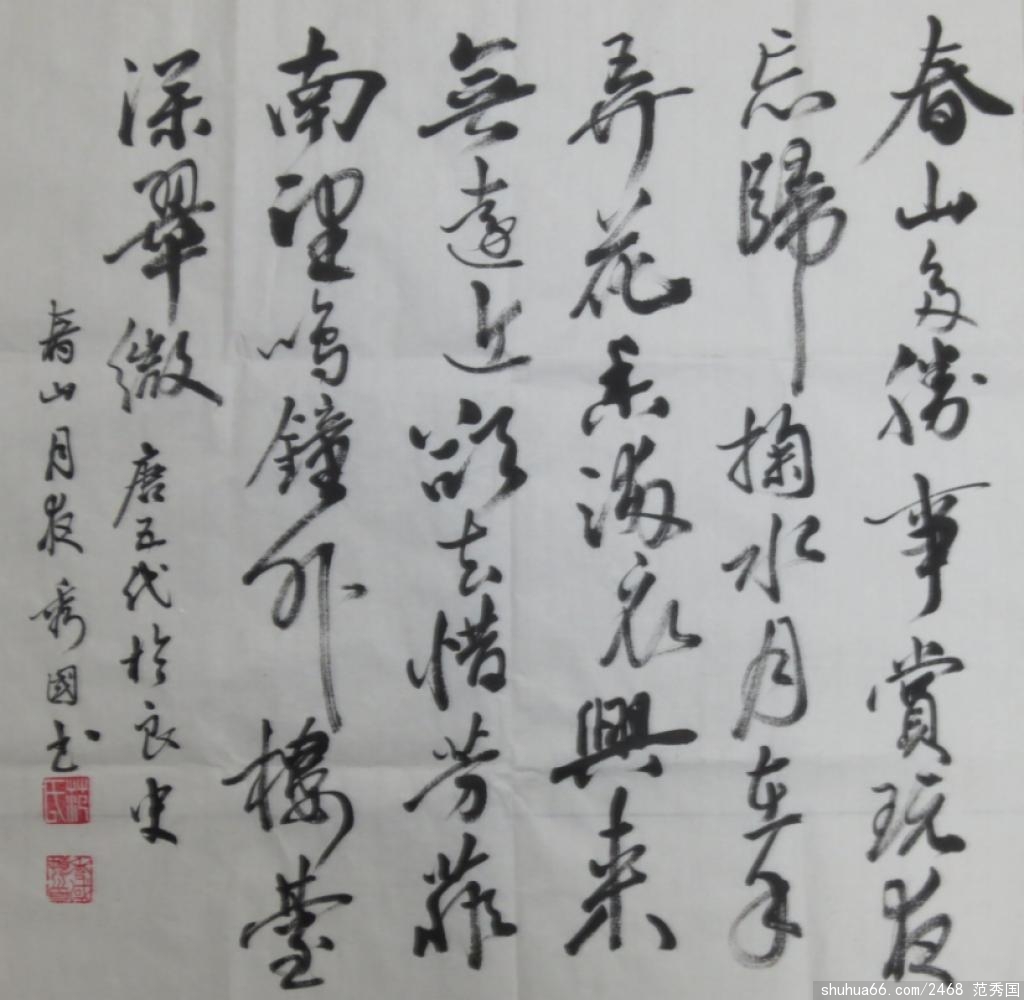 春山多勝事賞玩夜
忘歸掬水月在手
弄花香滿衣興來
無遠近欲去惜芳菲
南望鳴鐘外樓臺
深翠微 唐五代於良史
春山月夜 秀國书
范氏
shuhua66.com/2468 范秀国